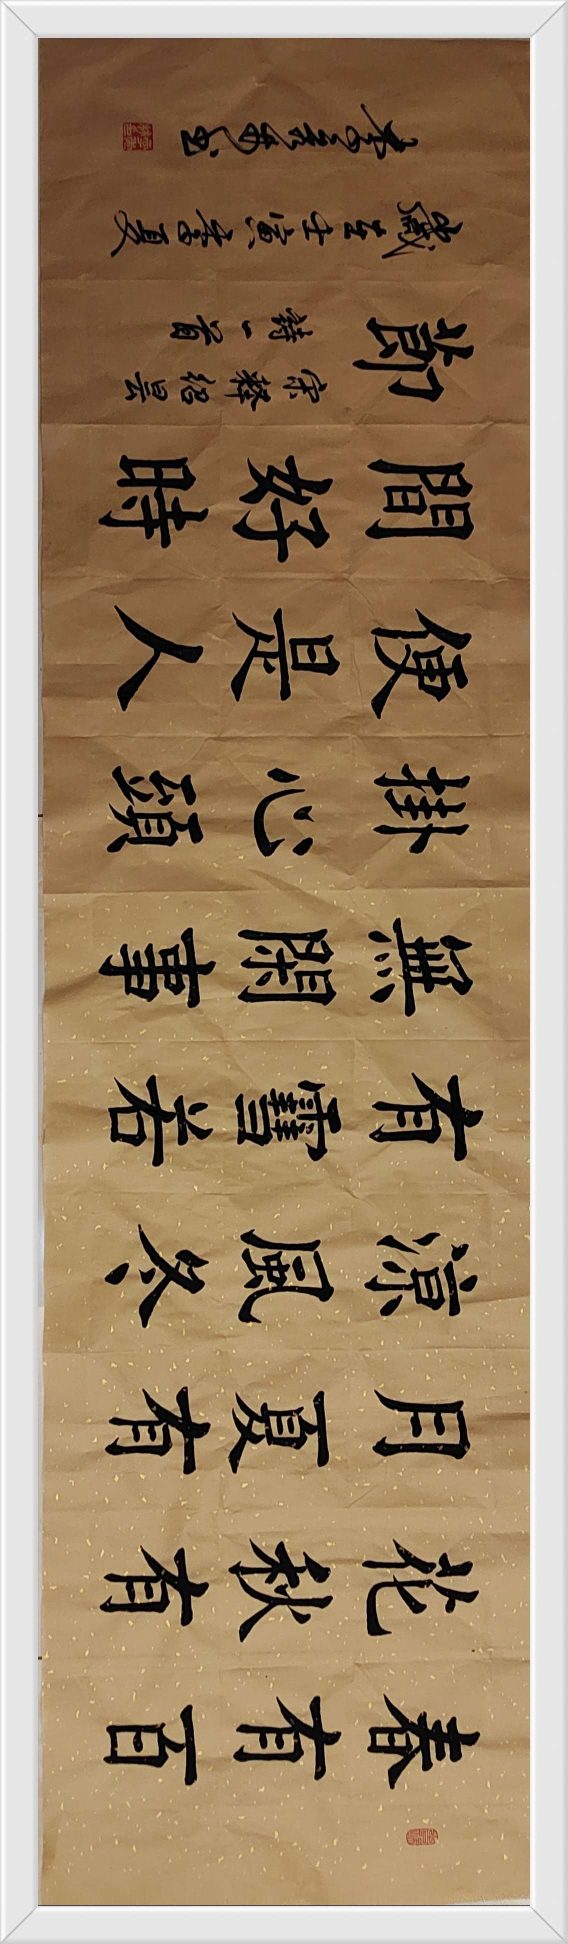 春有百
花秋有
月夏有
涼風冬
有雪若
無閑事
掛心頭
便是人
間好時
節
宋釋紹曇
詩一首
歲在壬寅 夏
李